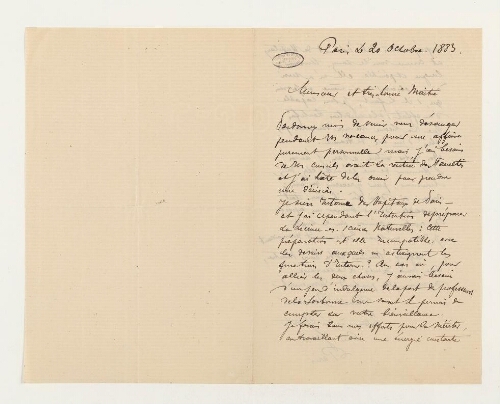 Paris le 20 Octobre 1883.
Monsieur et très honoré Maître
Pardonnez moi de venir vous déranger
pendant vos vacances pour une affaire
purement personnelle mais j'ai besoin
de vos conseils avant la rentrée des Facultés
et j'ai hâte de les avoir pour prendre
une décision.
Je suis interne des hôpitaux de Paris —
et j'ai cependant l'intention de préparer
la licence ès sciences Naturelles; cette
préparation est elle incompatible avec
les devoirs auxquels m'astreignent les
fonctions d'interne? En cas où pour
allier les deux choses, j'aurais besoin
d'un peu d'indulgence de la part des professeurs
de la Sorbonne me serait-il permis de
compter sur votre bienveillance
Je ferais tous mes efforts pour la mériter,
en travaillant avec une énergie constante